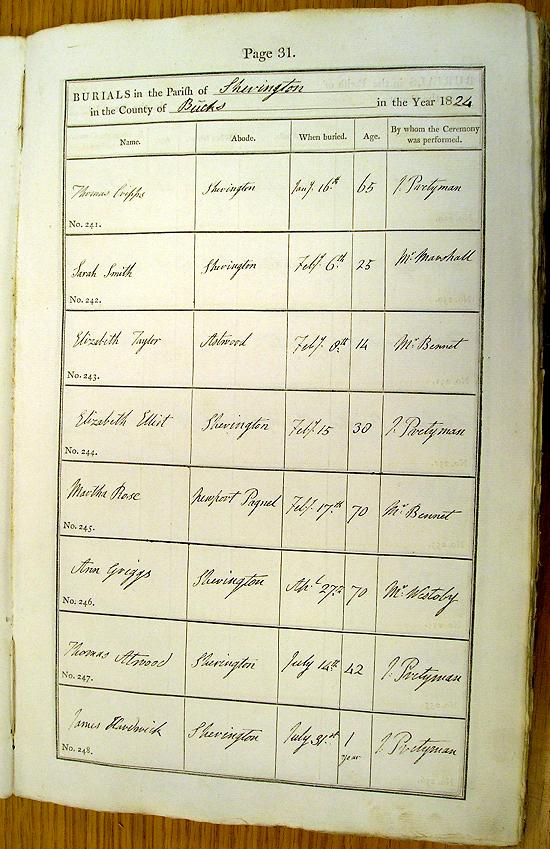 Page 31.
BURIALS in the Parish of Sherington
in the County of Bucks in the Year 1824
Name. Abode. When buried. Age. By whom the Ceremony was performed.
Thomas Cripps Sherington Jany. 16th 65 J. Pretyman
No. 241.
Sarah Smith Sherington Feby. 6th 25 Mr Marshall
No. 242.
Elizabeth Taylor Astwood Feby. 8th 14 Mr Bennet
No. 243.
Elizabeth Elliot Sherington Feby. 15 30 J. Pretyman
No. 244.
Martha Rose Newport Pagnel Feby. 17th 70 Mr Bennet
No. 245.
Ann Griggs Sherington Apl 27 70 Mr Westoby
No. 246.
Thomas Atwood Sherington July 14th 42 J. Pretyman
No. 247.
James Hardwick Sherington July 31st 1 year J. Pretyman
No. 248.